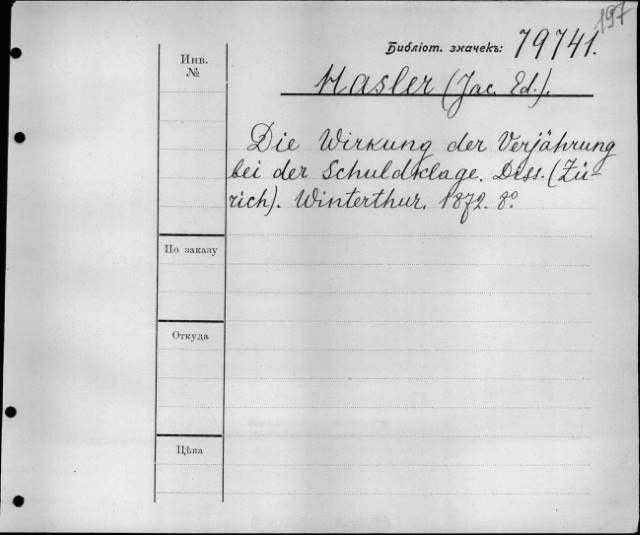 197
Библіот. значекъ: 79741.
Инв.
№
Hasler (Jac. Ed.).
Die Wirkung der Verjährung
bei der Schuldklage. Diss. (Zü-
rich). Winterthur. 1872. 8º.
По заказу
Откуда
Цѣна